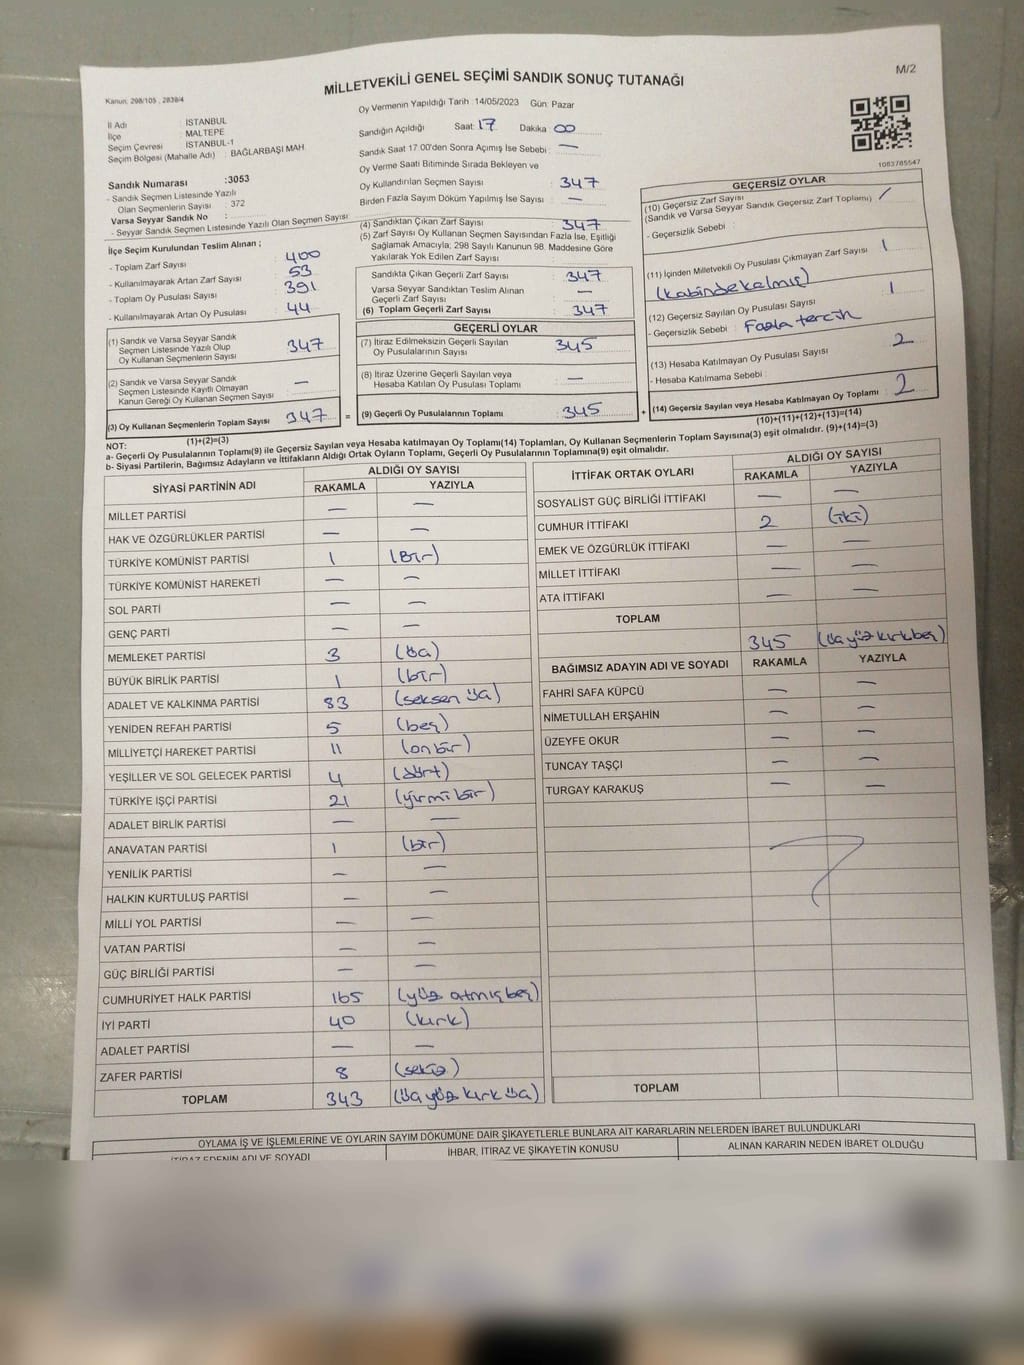 MİLLETVEKİLİ GENEL SEÇİMİ SANDIK SONUÇ TUTANAĞI
M/2
Kanun: 298/105 , 2839/4
İl Adı : İSTANBUL
İlçe : MALTEPE
Seçim Çevresi : İSTANBUL-1
Seçim Bölgesi (Mahalle Adı) : BAĞLARBAŞI MAH.
Sandık Numarası :3053
- Sandık Seçmen Listesinde Yazılı
Olan Seçmenlerin Sayısı : 372
Varsa Seyyar Sandık No :
- Seyyar Sandık Seçmen Listesinde Yazılı Olan Seçmen Sayısı :
Oy Vermenin Yapıldığı Tarih :14/05/2023 Gün: Pazar
Sandığın Açıldığı Saat: 17 Dakika 00
Sandık Saat 17.00'den Sonra Açımış İse Sebebi : —
Oy Verme Saati Bitiminde Sırada Bekleyen ve
Oy Kullandırılan Seçmen Sayısı : 347
Birden Fazla Sayım Döküm Yapılmış İse Sayısı : —
1083785547
İlçe Seçim Kurulundan Teslim Alınan ;
- Toplam Zarf Sayısı : 400
- Kullanılmayarak Artan Zarf Sayısı : 53
- Toplam Oy Pusulası Sayısı : 391
- Kullanılmayarak Artan Oy Pusulası : 44
(1) Sandık ve Varsa Seyyar Sandık
Seçmen Listesinde Yazılı Olup
Oy Kullanan Seçmenlerin Sayısı : 347
(2) Sandık ve Varsa Seyyar Sandık
Seçmen Listesinde Kayıtlı Olmayan
Kanun Gereği Oy Kullanan Seçmen Sayısı : —
(3) Oy Kullanan Seçmenlerin Toplam Sayısı : 347 =
(1)+(2)=(3)
(4) Sandıktan Çıkan Zarf Sayısı : 347
(5) Zarf Sayısı Oy Kullanan Seçmen Sayısından Fazla İse, Eşitliği
Sağlamak Amacıyla; 298 Sayılı Kanunun 98. Maddesine Göre
Yakılarak Yok Edilen Zarf Sayısı :
Sandıkta Çıkan Geçerli Zarf Sayısı : 347
Varsa Seyyar Sandıktan Teslim Alınan
Geçerli Zarf Sayısı : —
(6) Toplam Geçerli Zarf Sayısı : 347
GEÇERLİ OYLAR
(7) İtiraz Edilmeksizin Geçerli Sayılan
Oy Pusulalarının Sayısı : 345
(8) İtiraz Üzerine Geçerli Sayılan veya
Hesaba Katılan Oy Pusulası Toplamı : —
(9) Geçerli Oy Pusulalarının Toplamı : 345 +
GEÇERSİZ OYLAR
(10) Geçersiz Zarf Sayısı
(Sandık ve Varsa Seyyar Sandık Geçersiz Zarf Toplamı) /
- Geçersizlik Sebebi :
(11) İçinden Milletvekili Oy Pusulası Çıkmayan Zarf Sayısı 1
(kabinde kalmış)
(12) Geçersiz Sayılan Oy Pusulası Sayısı : 1
- Geçersizlik Sebebi : Fazla tercih
(13) Hesaba Katılmayan Oy Pusulası Sayısı 2
- Hesaba Katılmama Sebebi :
(14) Geçersiz Sayılan veya Hesaba Katılmayan Oy Toplamı : 2
(10)+(11)+(12)+(13)=(14)
NOT:
a- Geçerli Oy Pusulalarının Toplamı(9) ile Geçersiz Sayılan veya Hesaba katılmayan Oy Toplamı(14) Toplamları, Oy Kullanan Seçmenlerin Toplam Sayısına(3) eşit olmalıdır. (9)+(14)=(3)
b- Siyasi Partilerin, Bağımsız Adayların ve İttifakların Aldığı Ortak Oyların Toplamı, Geçerli Oy Pusulalarının Toplamına(9) eşit olmalıdır.
SİYASİ PARTİNİN ADI ALDIĞI OY SAYISI
RAKAMLA YAZIYLA
MİLLET PARTİSİ — —
HAK VE ÖZGÜRLÜKLER PARTİSİ — —
TÜRKİYE KOMÜNİST PARTİSİ 1 (Bir)
TÜRKİYE KOMÜNİST HAREKETİ — —
SOL PARTİ — —
GENÇ PARTİ — —
MEMLEKET PARTİSİ 3 (üç)
BÜYÜK BİRLİK PARTİSİ 1 (bir)
ADALET VE KALKINMA PARTİSİ 83 (seksen üç)
YENİDEN REFAH PARTİSİ 5 (beş)
MİLLİYETÇİ HAREKET PARTİSİ 11 (onbir)
YEŞİLLER VE SOL GELECEK PARTİSİ 4 (dört)
TÜRKİYE İŞÇİ PARTİSİ 21 (yirmi bir)
ADALET BİRLİK PARTİSİ — —
ANAVATAN PARTİSİ 1 (bir)
YENİLİK PARTİSİ — —
HALKIN KURTULUŞ PARTİSİ — —
MİLLİ YOL PARTİSİ — —
VATAN PARTİSİ — —
GÜÇ BİRLİĞİ PARTİSİ — —
CUMHURİYET HALK PARTİSİ 165 (yüz atmış beş)
İYİ PARTİ 40 (kırk)
ADALET PARTİSİ — —
ZAFER PARTİSİ 8 (sekiz)
TOPLAM 343 (üç yüz kırk üç)
İTTİFAK ORTAK OYLARI ALDIĞI OY SAYISI
RAKAMLA YAZIYLA
SOSYALİST GÜÇ BİRLİĞİ İTTİFAKI — —
CUMHUR İTTİFAKI 2 (iki)
EMEK VE ÖZGÜRLÜK İTTİFAKI — —
MİLLET İTTİFAKI — —
ATA İTTİFAKI — —
TOPLAM 345 (üç yüz kırkbeş)
BAĞIMSIZ ADAYIN ADI VE SOYADI RAKAMLA YAZIYLA
FAHRİ SAFA KÜPCÜ — —
NİMETULLAH ERŞAHİN — —
ÜZEYFE OKUR — —
TUNCAY TAŞÇI — —
TURGAY KARAKUŞ — —
TOPLAM
OYLAMA İŞ VE İŞLEMLERİNE VE OYLARIN SAYIM DÖKÜMÜNE DAİR ŞİKAYETLERLE BUNLARA AİT KARARLARIN NELERDEN İBARET BULUNDUKLARI
İTİRAZ EDENİN ADI VE SOYADI İHBAR, İTİRAZ VE ŞİKAYETİN KONUSU ALINAN KARARIN NEDEN İBARET OLDUĞU